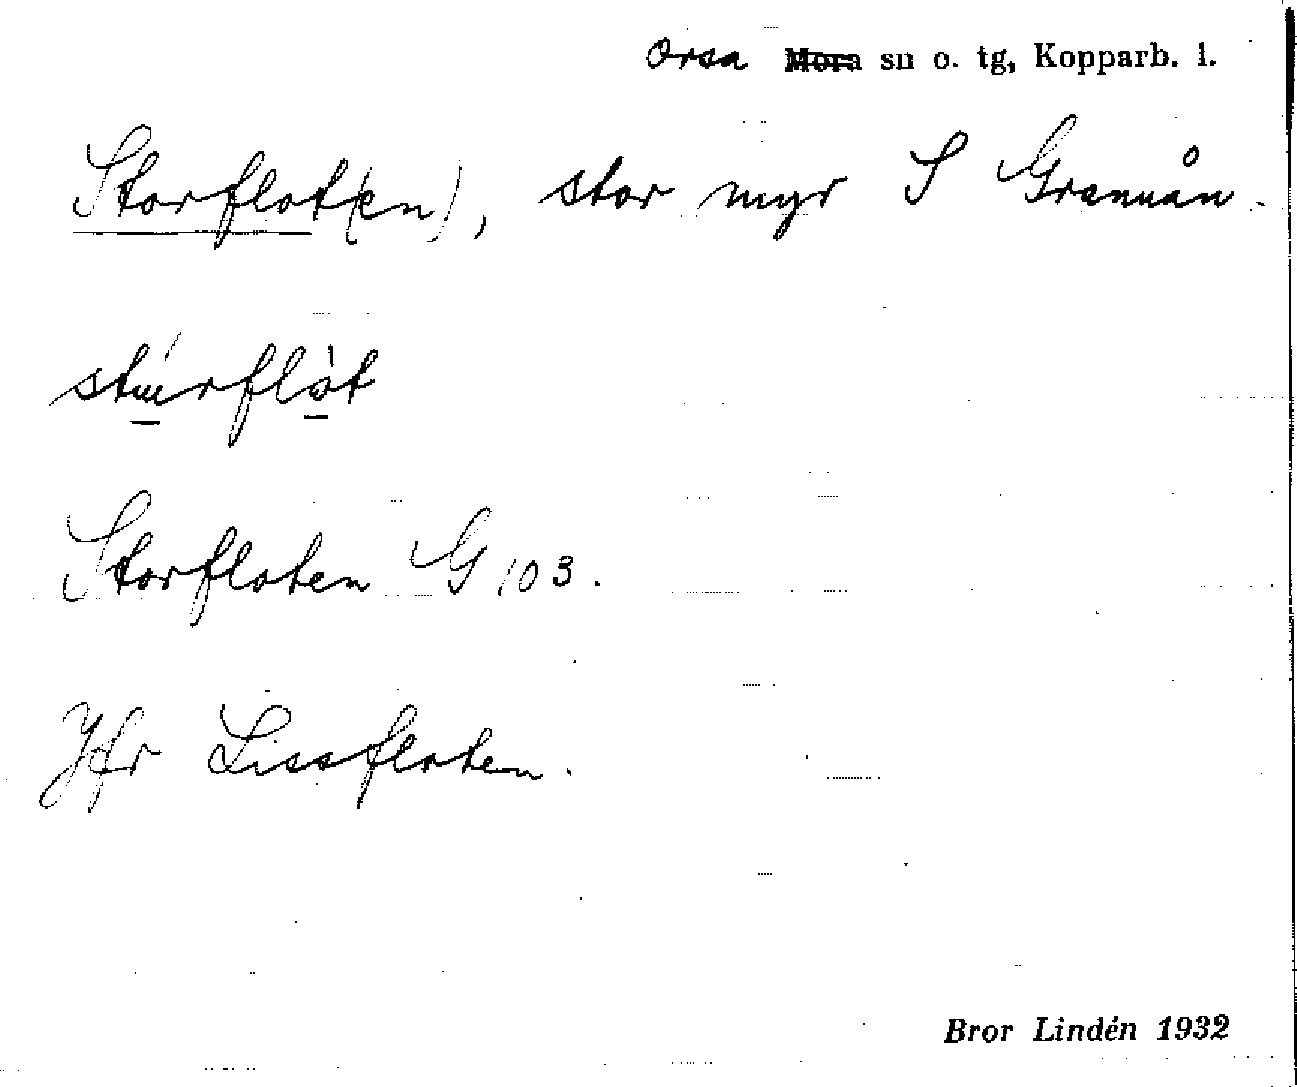 Orsa Mora sn o. tg, Kopparb. l.
Storflot(en), stor myr S Granuån.
stúrflòt
Storfloten G 103.
Jfr Lissfloten.
Bror Lindén 1932